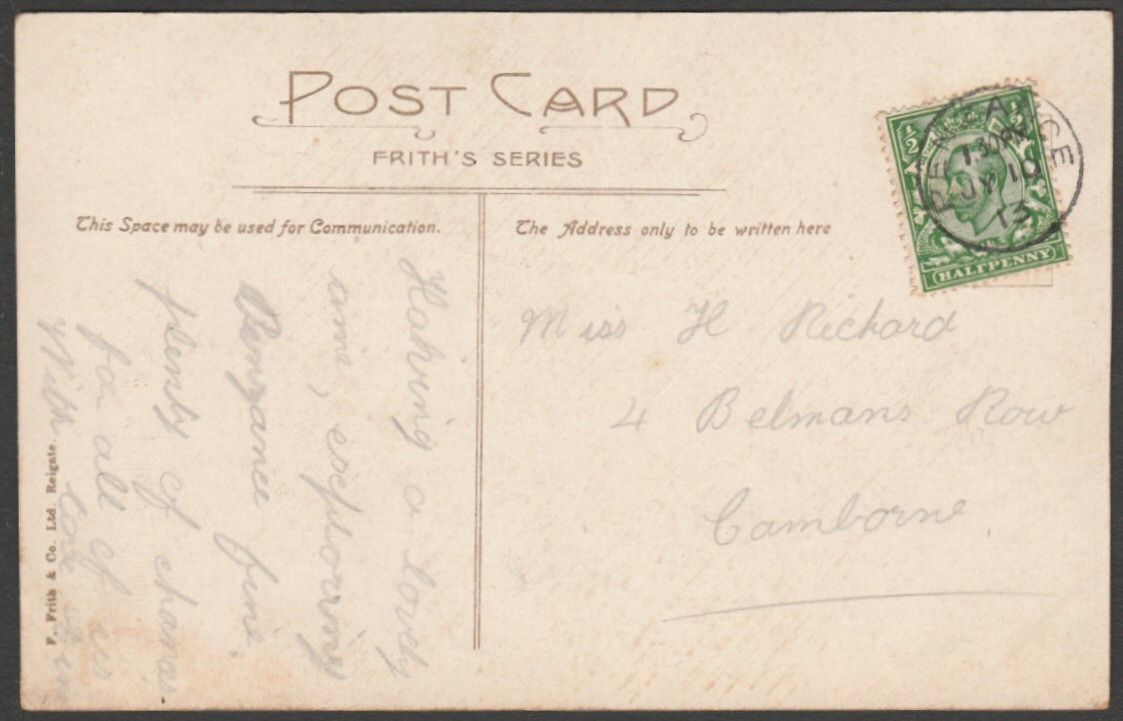 POST CARD
FRITH'S SERIES
This Space may be used for Communication.
The Address only to be written here
Having a lovely
time, exploring
Penzance fine
plenty of chances
for all of us
With love
Miss H Richard
4 Belmans Row
Camborne.
F. Frith & Co. Ltd. Reigate
PENZANCE
1 30 PM
JY 18
13
½
½
HALFPENNY